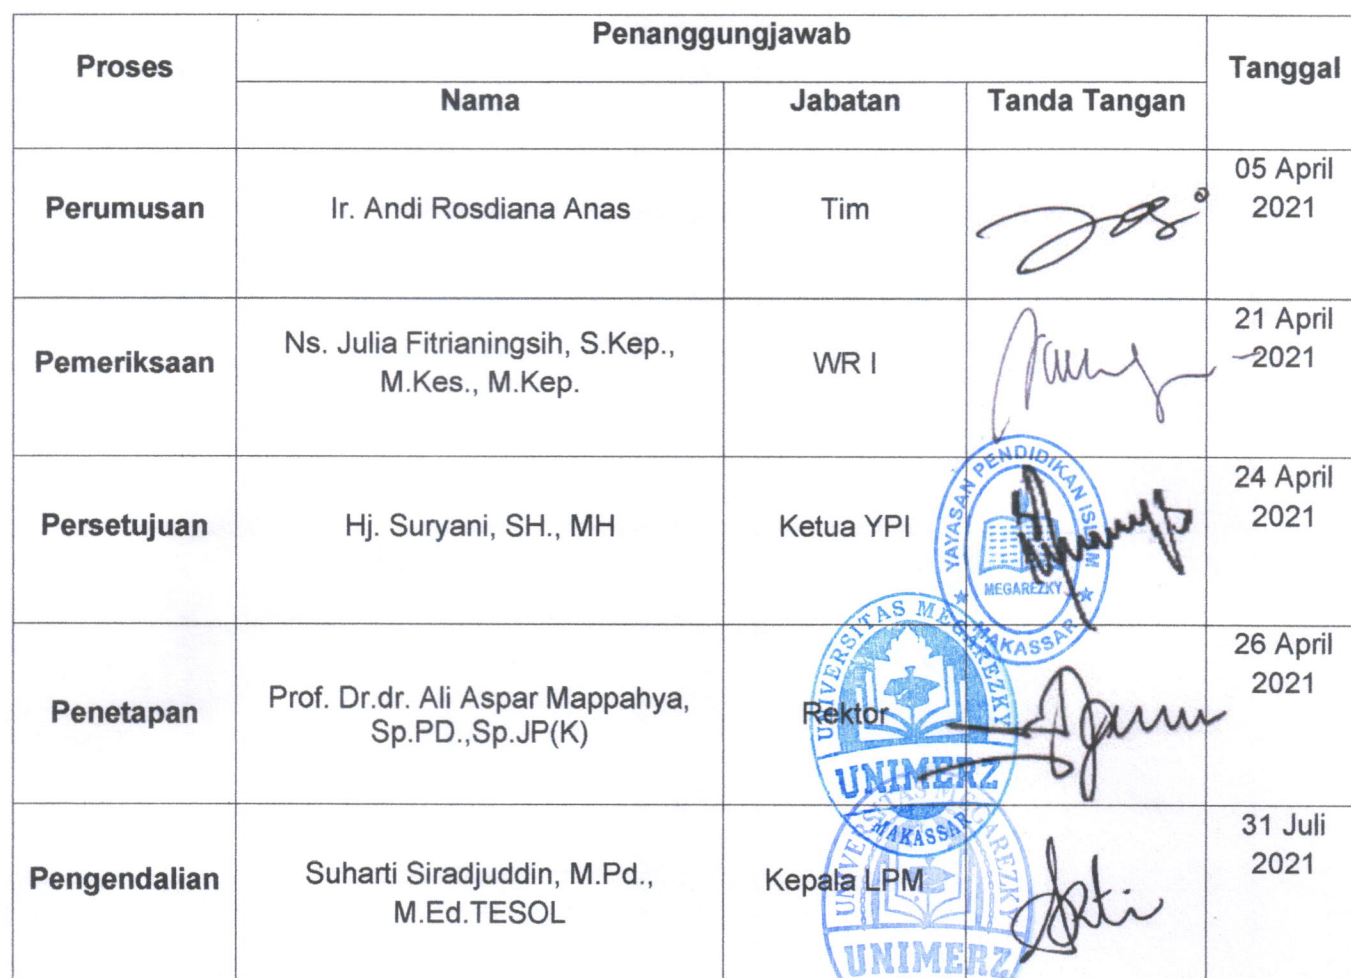 Proses
Penanggungjawab
Tanggal
Nama
Jabatan
Tanda Tangan
Perumusan
Ir. Andi Rosdiana Anas
Tim
05 April
2021
Pemeriksaan
Ns. Julia Fitrianingsih, S.Kep.,
M.Kes., M.Kep.
WR I
21 April
2021
Persetujuan
Hj. Suryani, SH., MH
Ketua YPI
YAYASAN PENDIDIKAN ISLAM
MEGAREZKY
MAKASSAR
24 April
2021
Penetapan
Prof. Dr.dr. Ali Aspar Mappahya,
Sp.PD.,Sp.JP(K)
Rektor
UNIVERSITAS MEGAREZKY
UNIMERZ
MAKASSAR
26 April
2021
Pengendalian
Suharti Siradjuddin, M.Pd.,
M.Ed.TESOL
Kepala LPM
UNIVERSITAS MEGAREZKY
UNIMERZ
31 Juli
2021